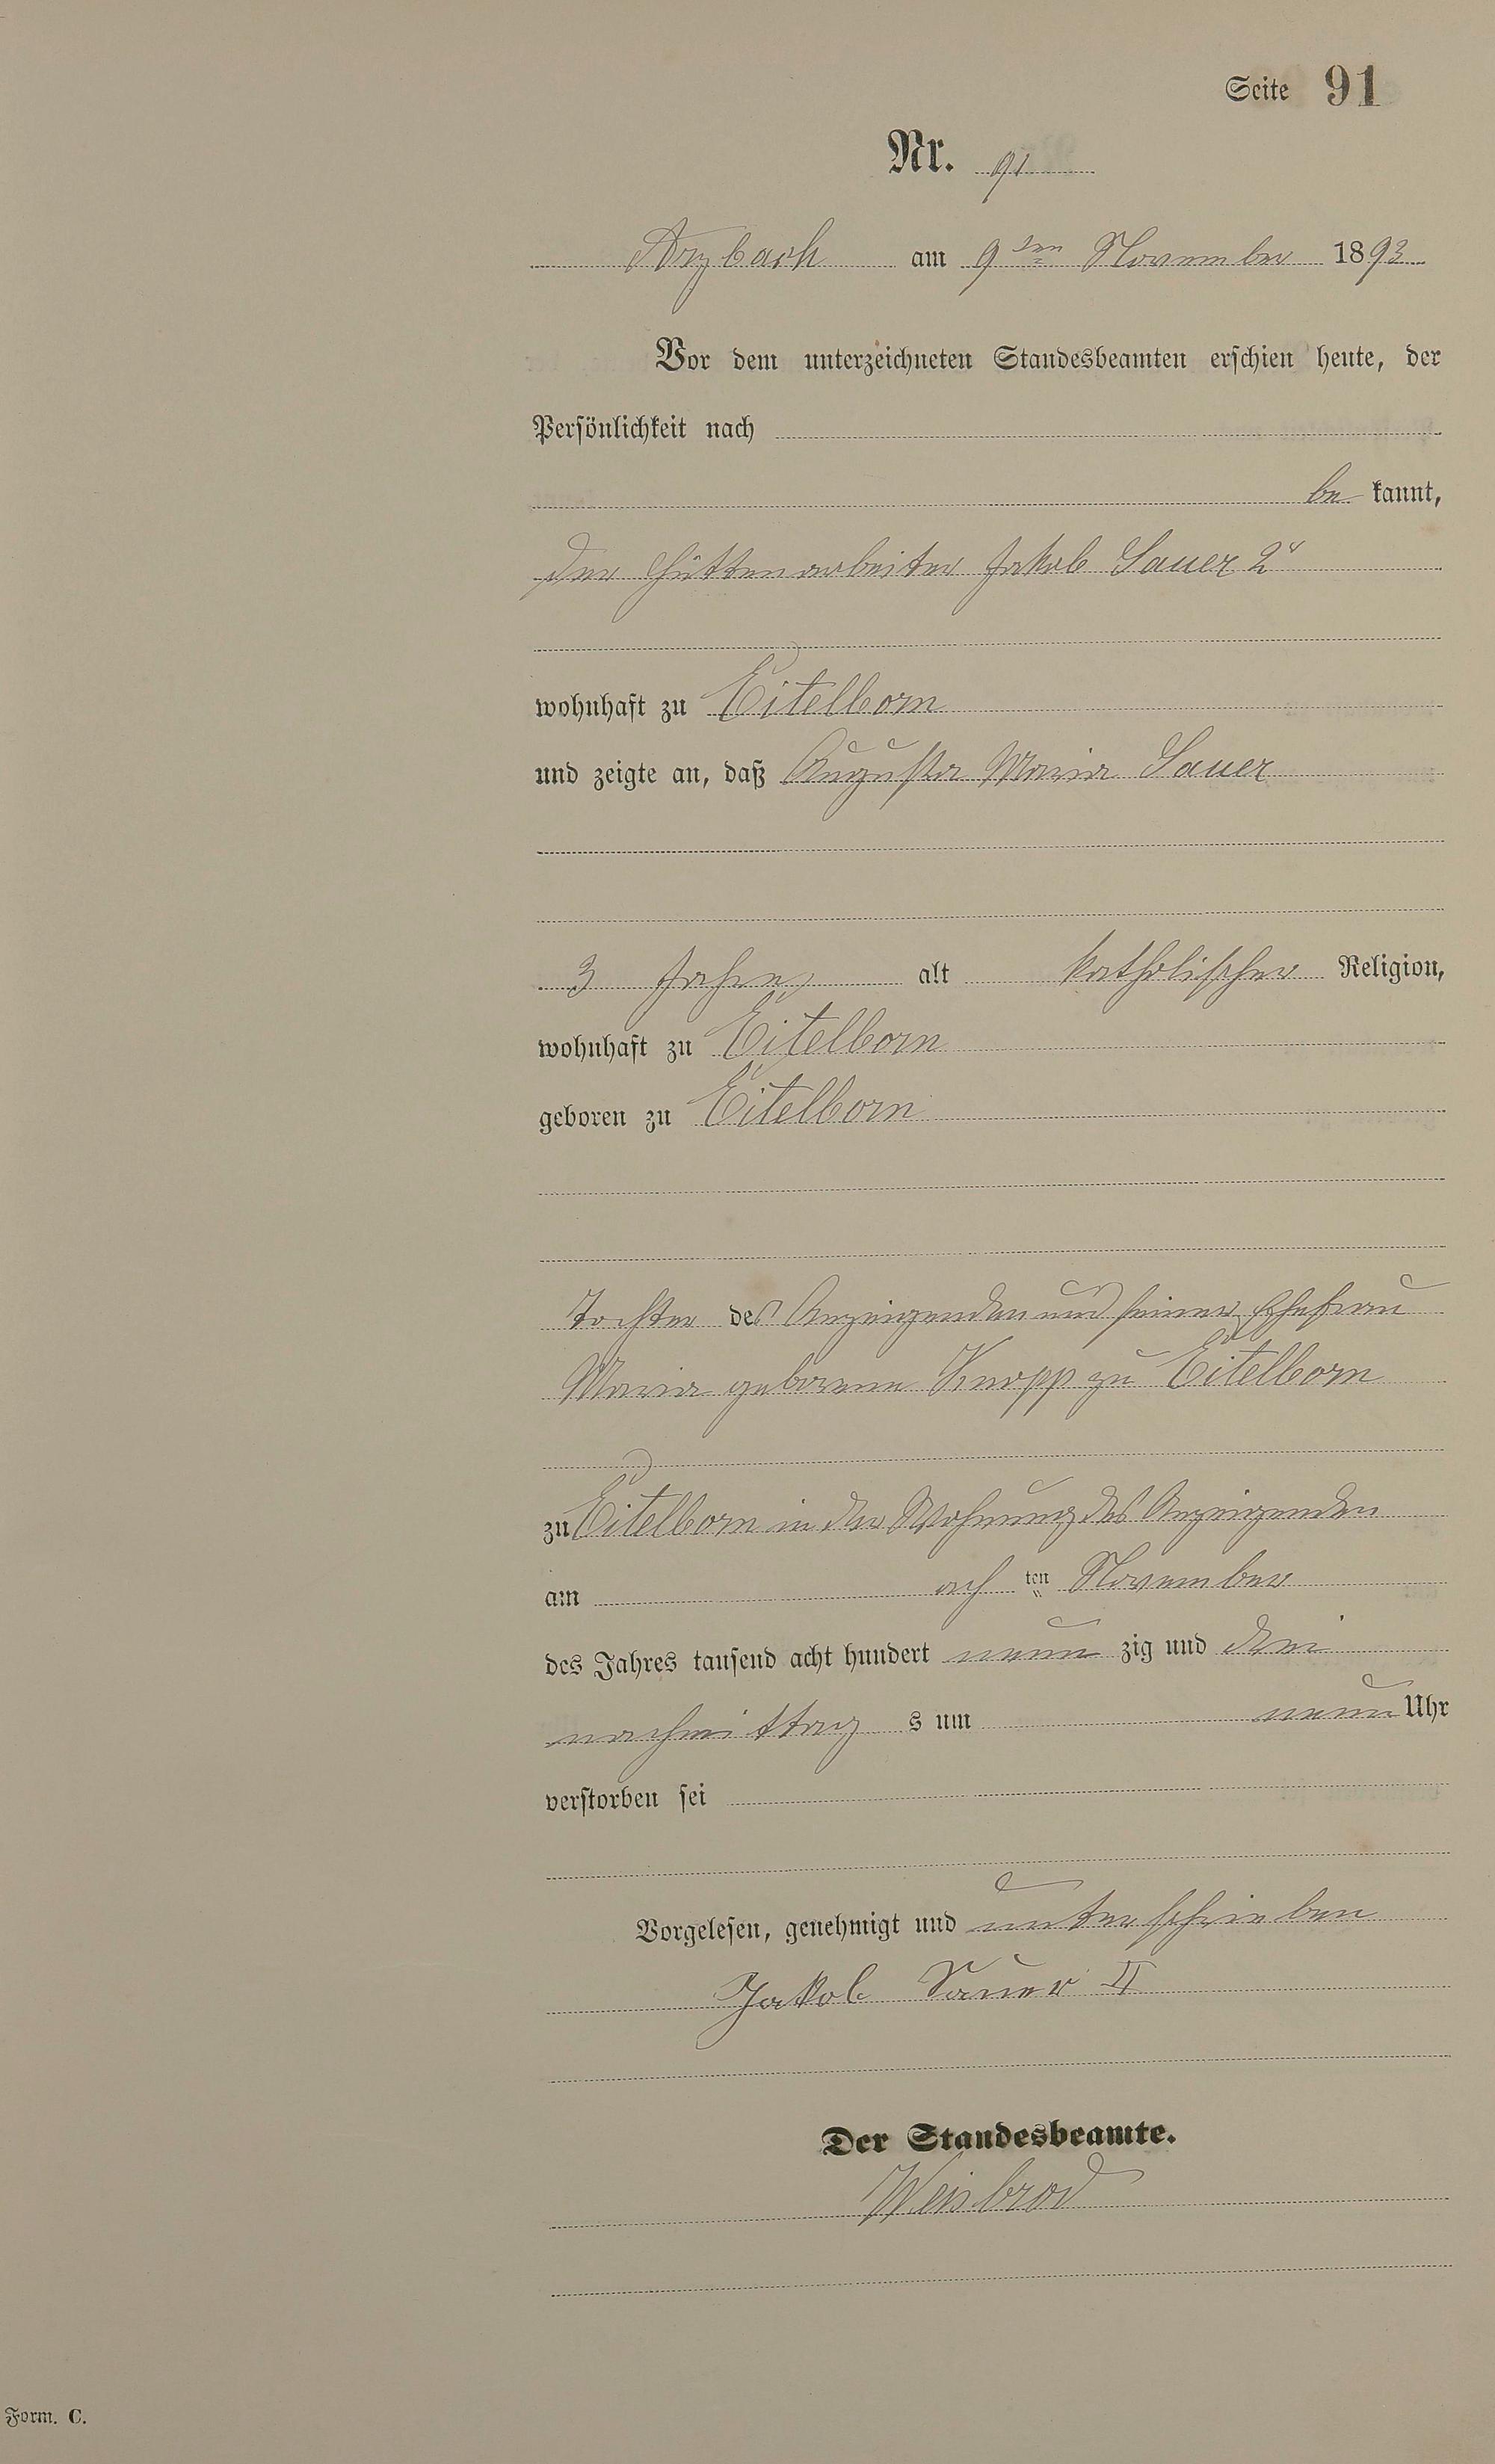 Seite 91
Nr. 91
Arzbach am 9ten November 1893
Vor dem unterzeichneten Standesbeamten erschien heute, der
Persönlichkeit nach
be kannt,
der Hüttenarbeiter Jakob Sauer 2r
wohnhaft zu Eitelborn
und zeigte an, daß Augusta Maria Sauer
3 Jahre, alt katholischer Religion,
wohnhaft zu Eitelborn
geboren zu Eitelborn
Tochter des Anzeigenden und seiner Ehefrau
Maria geborene Knopp zu Eitelborn
zu Eitelborn in der Wohnung des Anzeigenden
am ach ten November
des Jahres tausend acht hundert neun zig und drei
nachmittag s um neun Uhr
verstorben sei
Vorgelesen, genehmigt und unterschrieben
Jakob Sauer II
Der Standesbeamte.
Weisbrod
Form. C.